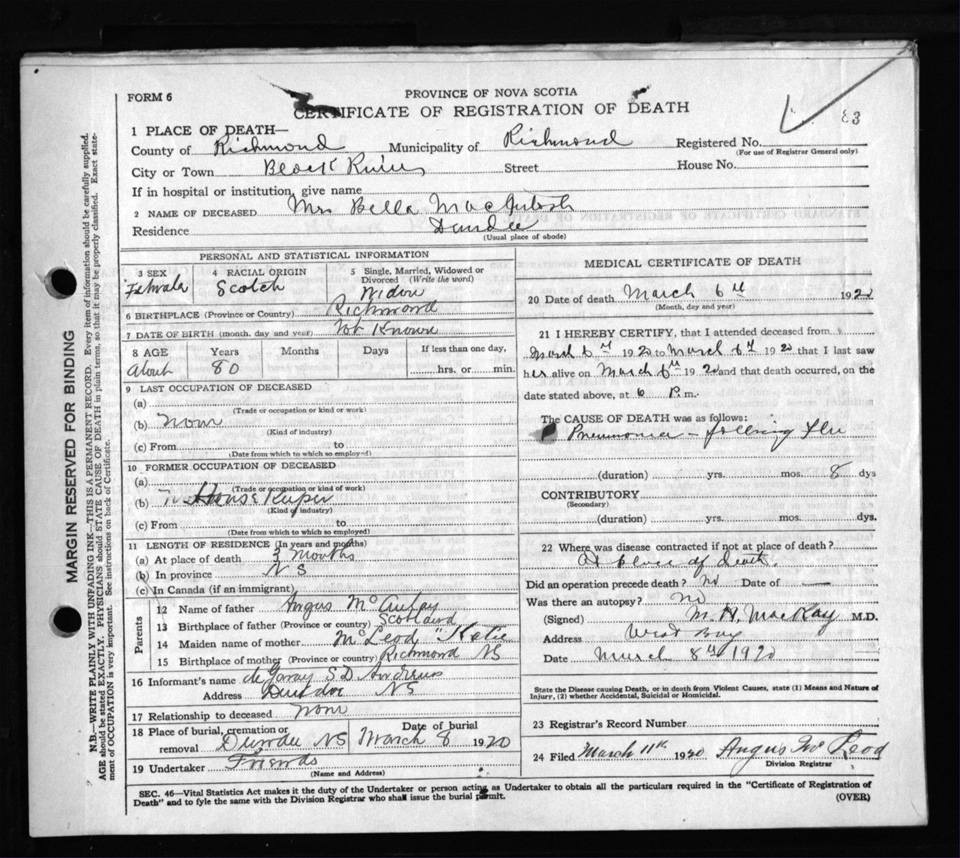 FORM 6
PROVINCE OF NOVA SCOTIA
CERTIFICATE OF REGISTRATION OF DEATH
83
1 PLACE OF DEATH—
County of Richmond Municipality of Richmond Registered No.
(For use of Registrar General only)
City or Town Black River Street House No.
If in hospital or institution, give name
2 NAME OF DECEASED Mrs Bella MacIntosh
Residence Dundee
(Usual place of abode)
PERSONAL AND STATISTICAL INFORMATION
3 SEX 4 RACIAL ORIGIN 5 Single, Married, Widowed or
Divorced (Write the word)
Female Scotch Widow
6 BIRTHPLACE (Province or Country) Richmond
7 DATE OF BIRTH (month, day and year) Not Known
8 AGE Years Months Days If less than one day,
About 80 hrs. or min.
9 LAST OCCUPATION OF DECEASED
(a)
(Trade or occupation or kind or work)
(b) None
(Kind of industry)
(c) From to
(Date from which to which so employed)
10 FORMER OCCUPATION OF DECEASED
(a)
(Trade or occupation or kind of work)
(b) House Keeper
(Kind of industry)
(c) From to
(Date from which to which so employed)
11 LENGTH OF RESIDENCE (In years and months)
(a) At place of death 3 Months
(b) In province N S
(c) In Canada (if an immigrant)
Parents
12 Name of father Angus McAulay
13 Birthplace of father (Province or country) Scotland
14 Maiden name of mother McLeod "Katie
15 Birthplace of mother (Province or country) Richmond NS
16 Informant's name S.D. Andrews
Address Dundee NS
17 Relationship to deceased None
18 Place of burial, cremation or Date of burial
removal Dundee NS March 8 1920
19 Undertaker Friends
(Name and Address)
MEDICAL CERTIFICATE OF DEATH
20 Date of death March 6th 1920
(Month, day and year)
21 I HEREBY CERTIFY, that I attended deceased from
March 6th 1920 to March 6th 1920 that I last saw
her alive on March 6th 1920 and that death occurred, on the
date stated above, at 6 P.m.
The CAUSE OF DEATH was as follows:
Pneumonia - following Flu
(duration) yrs. mos. 8 dys
CONTRIBUTORY
(Secondary)
(duration) yrs. mos. dys.
22 Where was disease contracted if not at place of death?
At place of death.
Did an operation precede death? No Date of
Was there an autopsy? No
(Signed) M. N. MacKay M.D.
Address West Bay
Date March 8th 1920
State the Disease causing Death, or in death from Violent Causes, state (1) Means and Nature of
Injury, (2) whether Accidental, Suicidal or Homicidal.
23 Registrar's Record Number
24 Filed March 11th 1920 Angus McLeod
Division Registrar
SEC. 46—Vital Statistics Act makes it the duty of the Undertaker or person acting as Undertaker to obtain all the particulars required in the "Certificate of Registration of
Death" and to fyle the same with the Division Registrar who shall issue the burial permit.
(OVER)
MARGIN RESERVED FOR BINDING
N.B.—WRITE PLAINLY WITH UNFADING INK—THIS IS A PERMANENT RECORD. Every item of information should be carefully supplied.
AGE should be stated EXACTLY. PHYSICIANS should STATE CAUSE OF DEATH in plain terms, so that it may be properly classified. Exact state-
ment of OCCUPATION is very important. See instructions on back of Certificate.